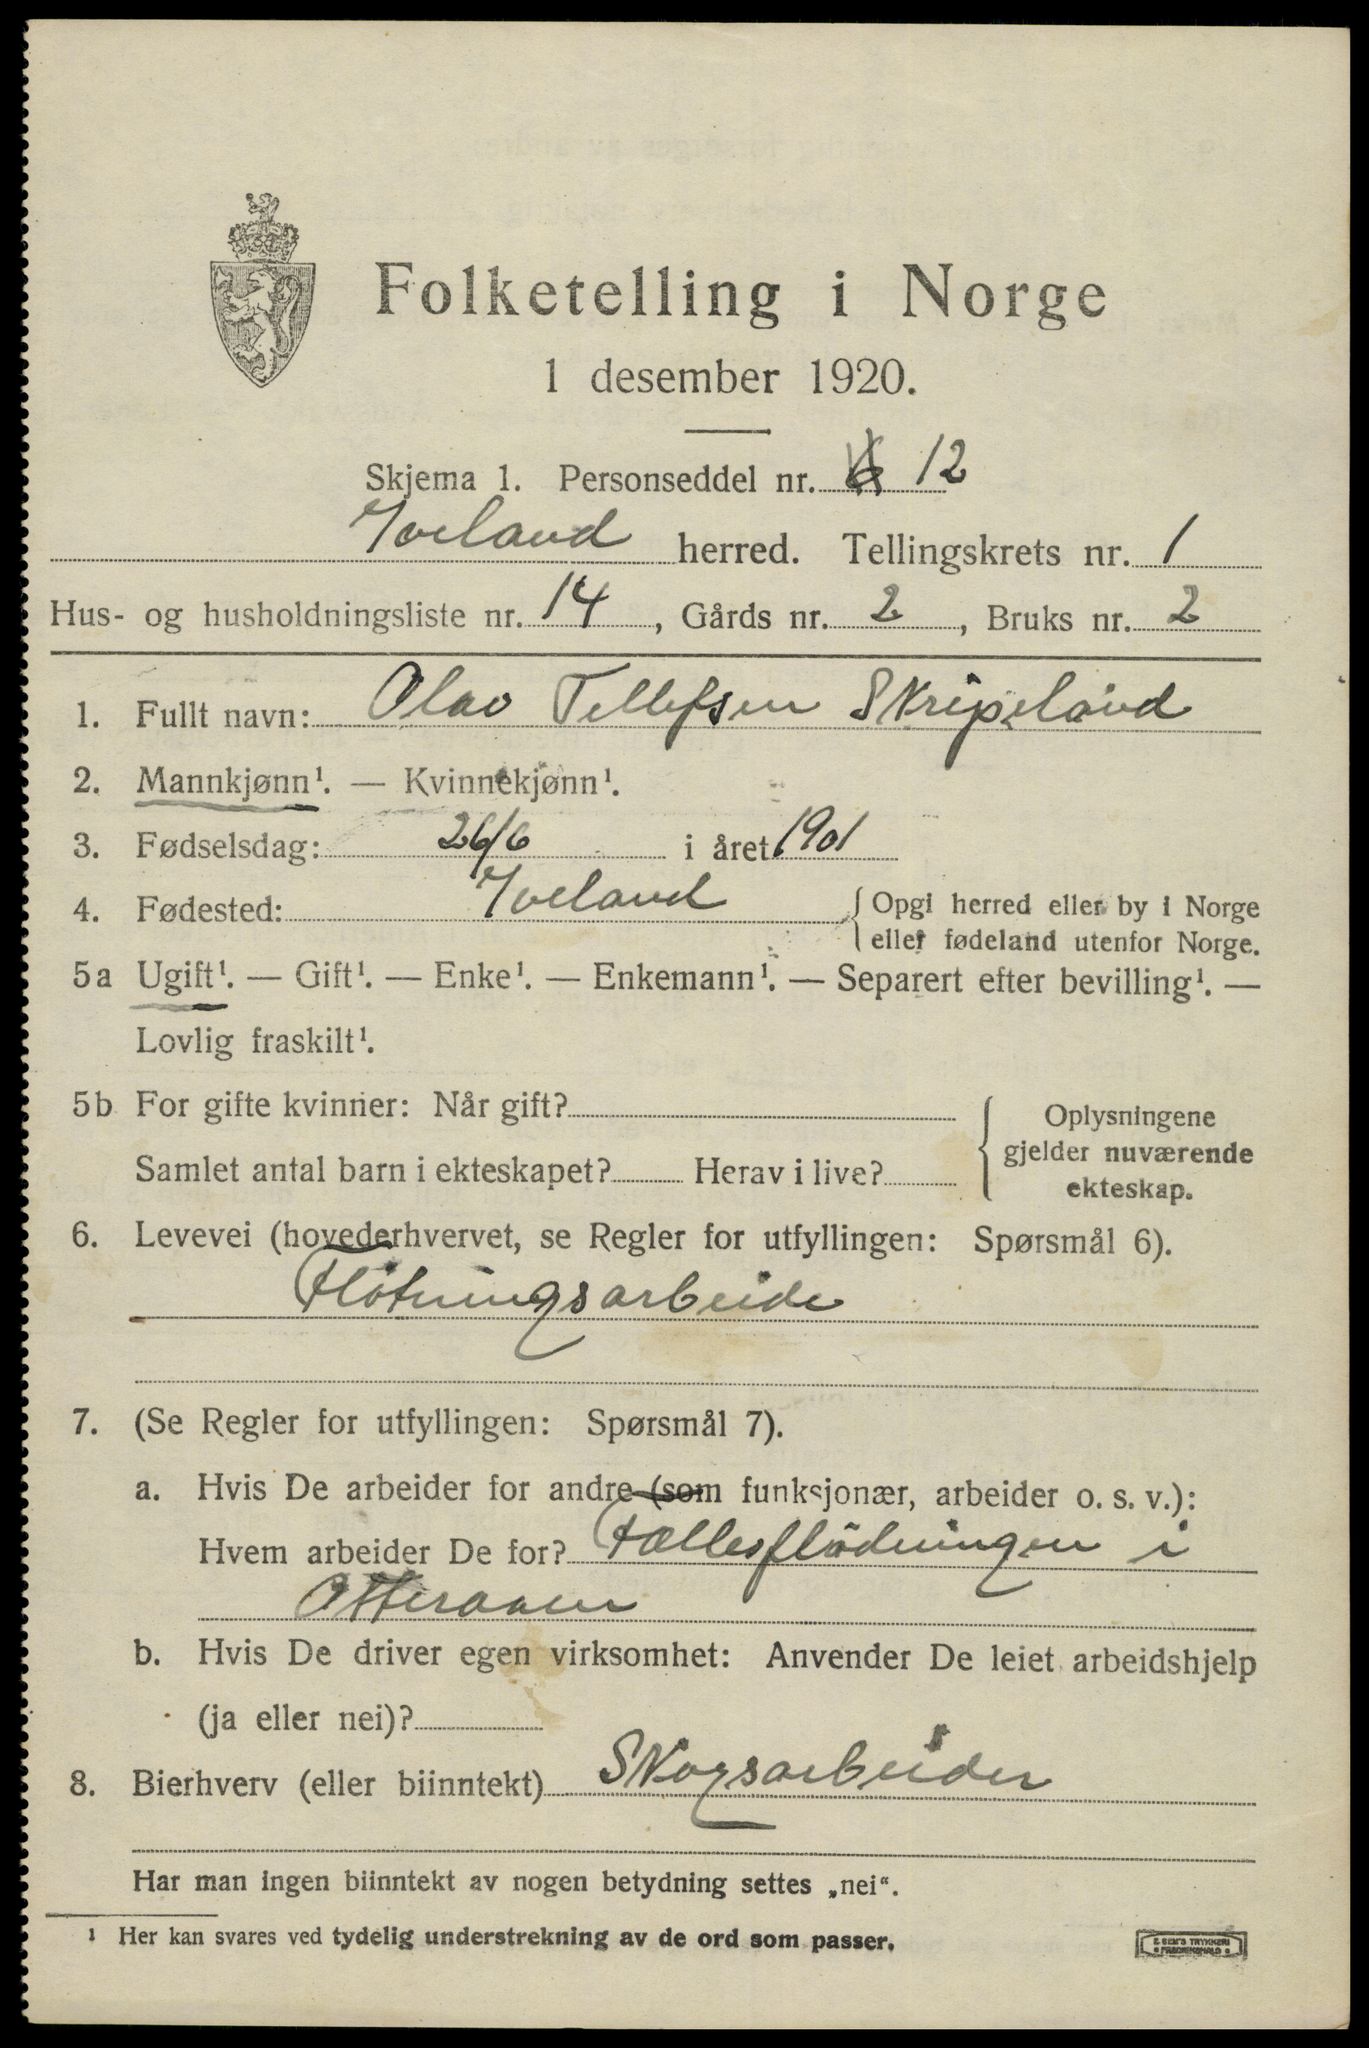 Folketelling i Norge
1 desember 1920.
Skjema 1. Personseddel nr. 12
Iveland herred. Tellingskrets nr. 1
Hus- og husholdningsliste nr. 14, Gårds nr. 2, Bruks nr. 2
1. Fullt navn: Olav Tellefsen Skripeland
2. Mannkjønn¹. — Kvinnekjønn¹.
3. Fødselsdag: 26/6 i året 1901
4. Fødested: Iveland { Opgi herred eller by i Norge
eller fødeland utenfor Norge.
5a Ugift¹. — Gift¹. — Enke¹. — Enkemann¹. — Separert efter bevilling¹. —
Lovlig fraskilt¹.
5b For gifte kvinner: Når gift?
Samlet antal barn i ekteskapet? Herav i live?
{ Oplysningene
gjelder nuværende
ekteskap.
6. Levevei (hovederhvervet, se Regler for utfyllingen: Spørsmål 6).
Fløtningsarbeide
7. (Se Regler for utfyllingen: Spørsmål 7).
a. Hvis De arbeider for andre (som funksjonær, arbeider o. s. v.):
Hvem arbeider De for? Fællesflødningen i
Otteraaen
b. Hvis De driver egen virksomhet: Anvender De leiet arbeidshjelp
(ja eller nei)?
8. Bierhverv (eller biinntekt) Skogsarbeider
Har man ingen biinntekt av nogen betydning settes „nei“.
¹ Her kan svares ved tydelig understrekning av de ord som passer.
E. SEM'S TRYKKERI
FREDRIKSHALD